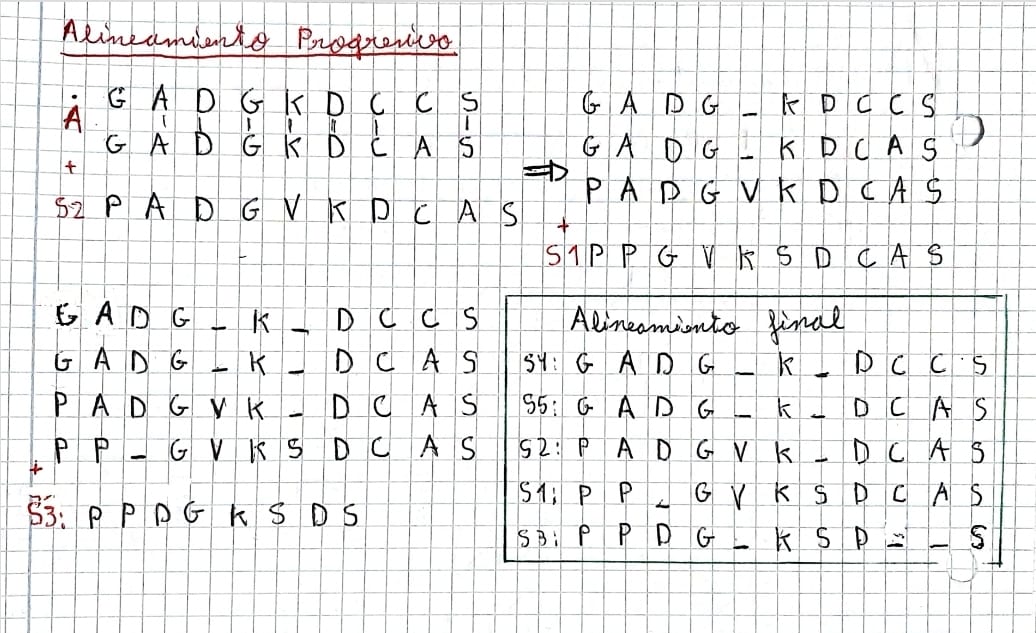 Alineamiento Progresivo
A G A D G K D C C S
G A D G K D C A S
+
S2 P A D G V K D C A S
⇒
G A D G _ K D C C S
G A D G - K D C A S
P A D G V K D C A S
+
S1 P P G V K S D C A S
G A D G - K - D C C S
G A D G - K - D C A S
P A D G V K - D C A S
P P - G V K S D C A S
+
S3: P P D G K S D S
Alineamiento final
S4: G A D G - K - D C C S
S5: G A D G - K - D C A S
S2: P A D G V K - D C A S
S1: P P - G V K S D C A S
S3: P P D G - K S D - - S